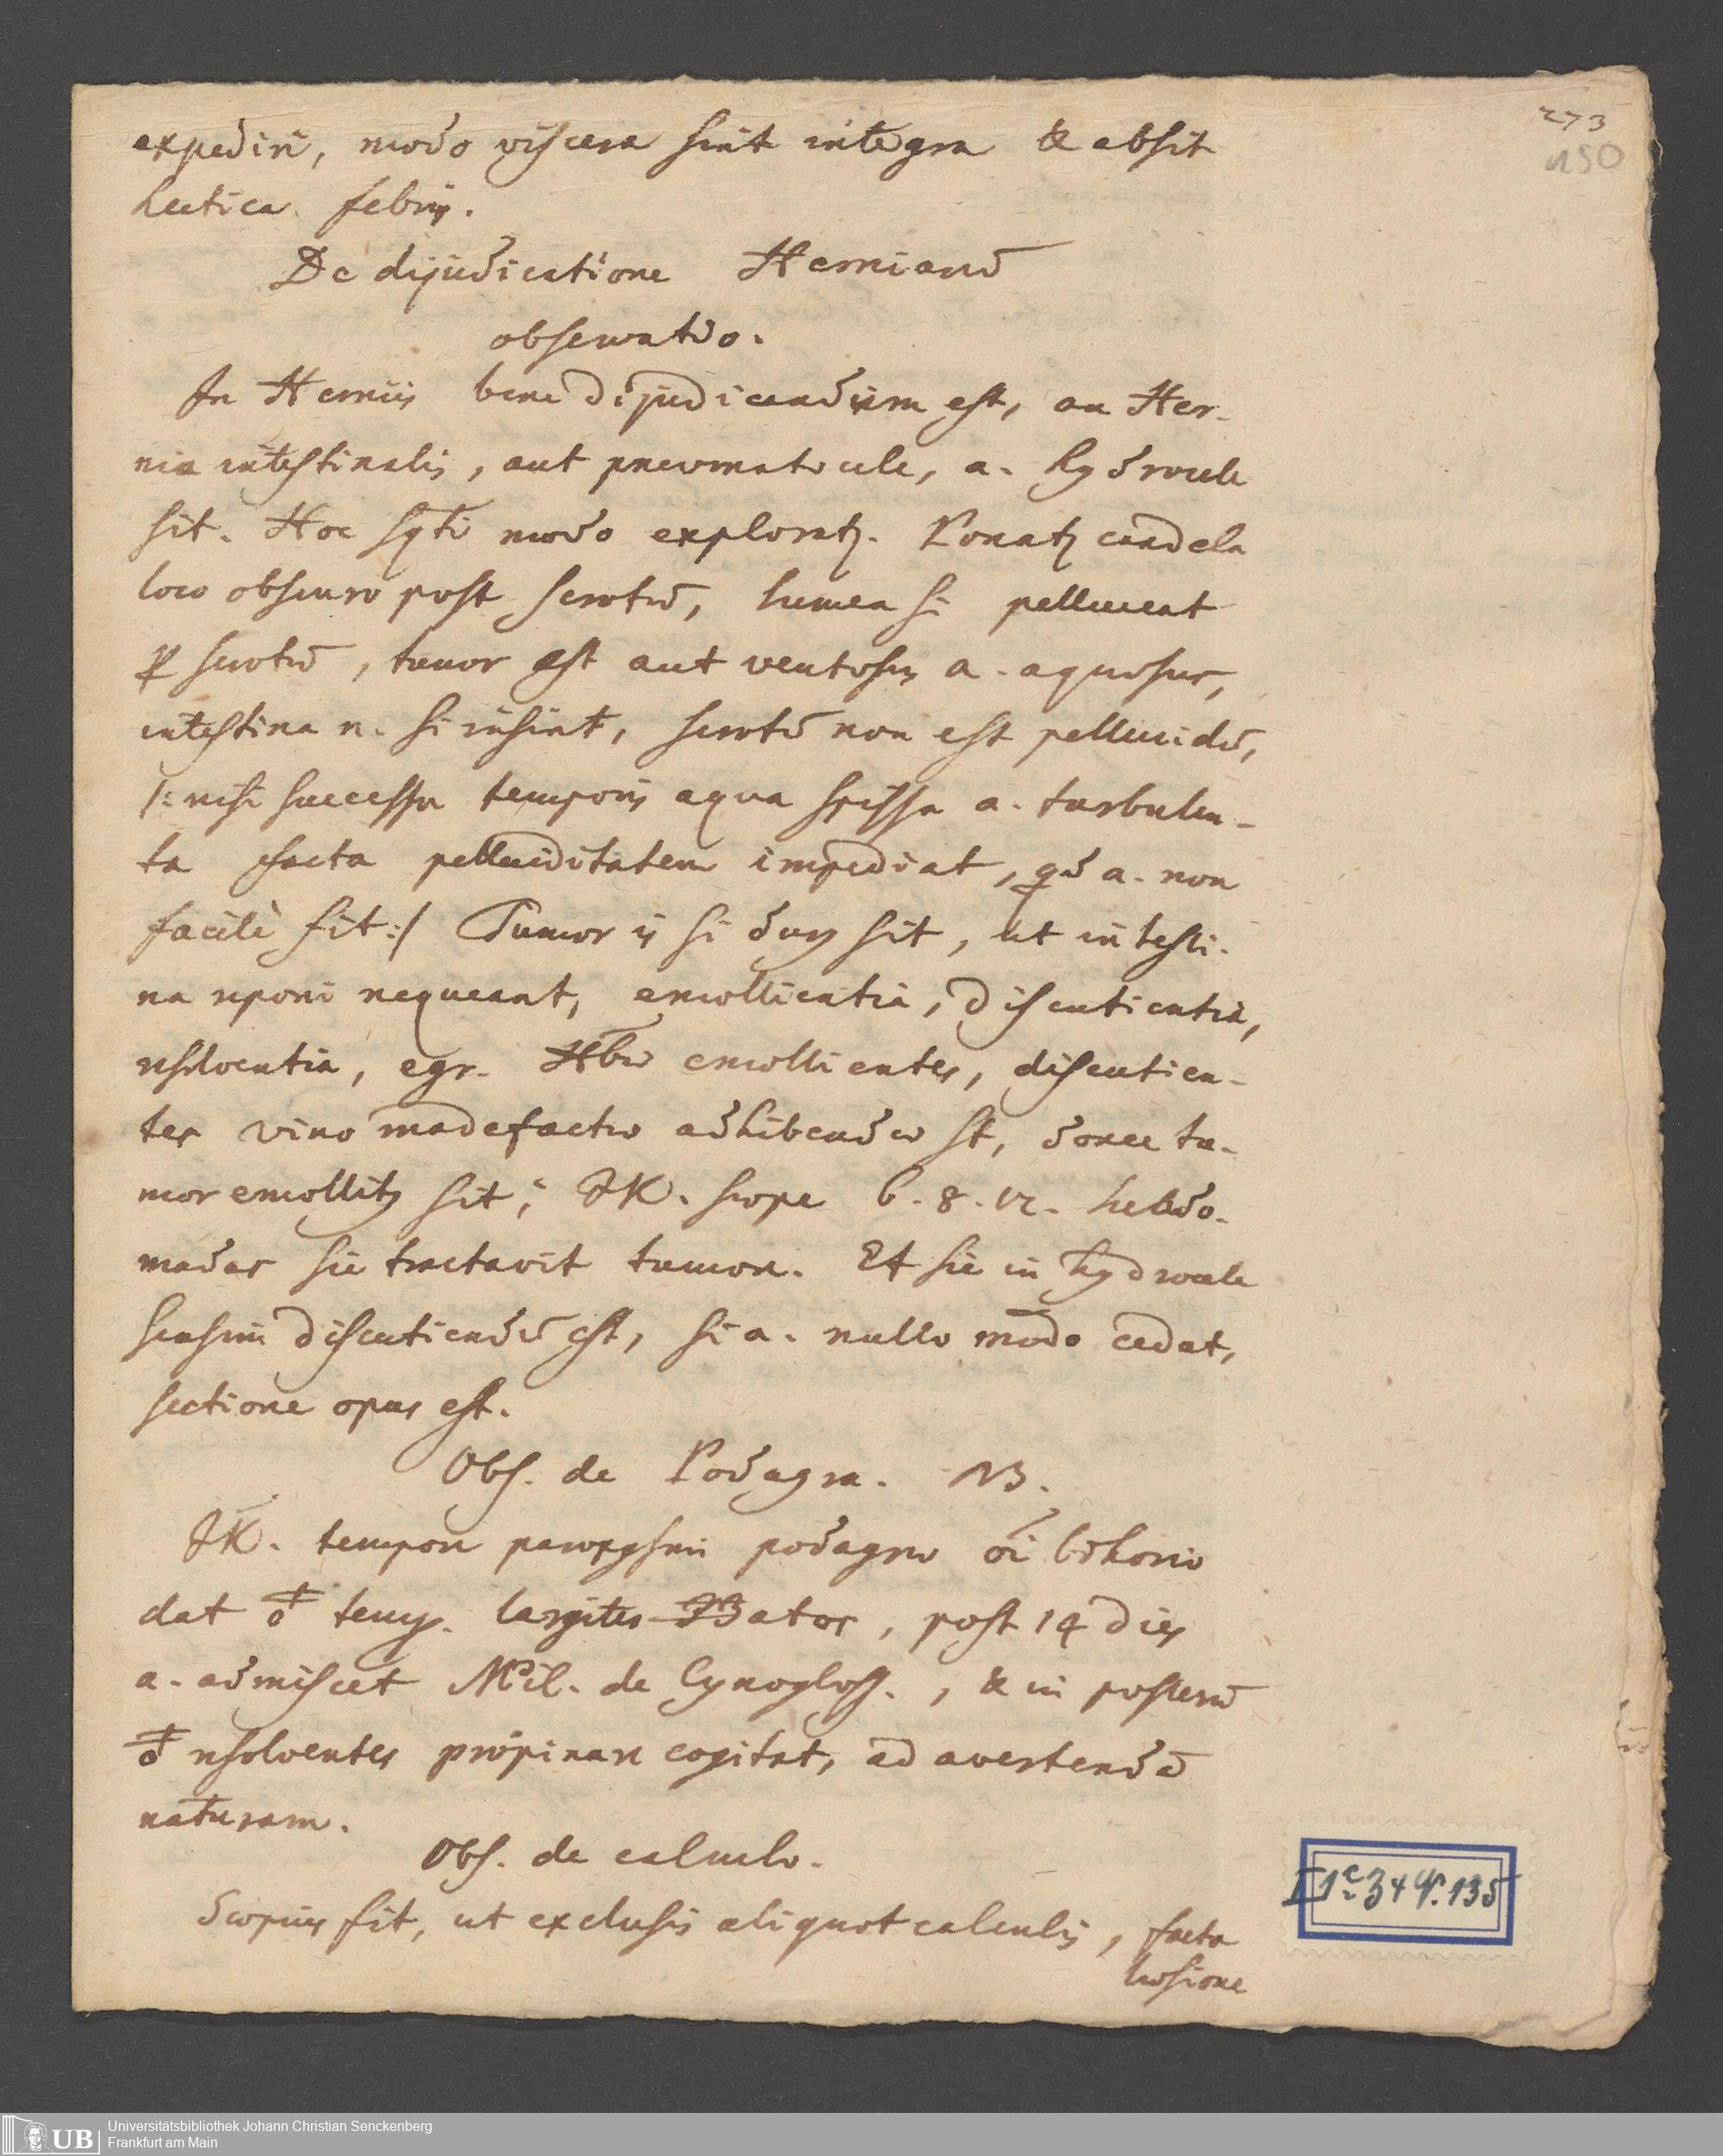 273
150
expediri, modo viscera sint integra & absit
hectica febris.
De dijudicatione Herniarū
observatio.
In Herniis bene dijudicandum est, an Her-
nia intestinalis, aut pneumatocele, a. hydrocele
sit. Hoc sqti modo exploratꝫ. Ponatꝫ candela
loco obscuro post scrotū, lumen si pelluceat
ꝑ scrotū, tumor est aut ventosus a. aquosus,
intestina n. si insint, scrotū non est pellucidū,
/: nisi successu temporis aqua spissa a. turbulen-
ta facta pelluciditatem impediat, qd a. non
facilè fit :/ Tumor is si durꝯ sit, ut intesti-
na reponi nequeant, emollientia, discutientia,
resolventia, egr. Hbæ emollientes, discutien-
tes vino madefactæ adhibendæ st, donec tu-
mor emollitꝯ sit; JK. sæpe 6. 8. 12. hebdo-
madas sic tractavit tumore. Et sic in hydrocele
sensim discutiendū est, si a. nullo modo cedat,
sectione opus est.
Obs. de Podagra. NB.
JK. tempore paroxysmi podagræ
dat temp. largiter , post 14 dies
a. admiscet Pil. de Cynogloss., & in posterū
resolventes propinare cogitat, ad avertendā
naturam.
Obs. de calculo.
Sæpius fit, ut exclusis aliquot calculis, facta
læsione
1c 34 N. 135
UB
Universitätsbibliothek Johann Christian Senckenberg
Frankfurt am Main